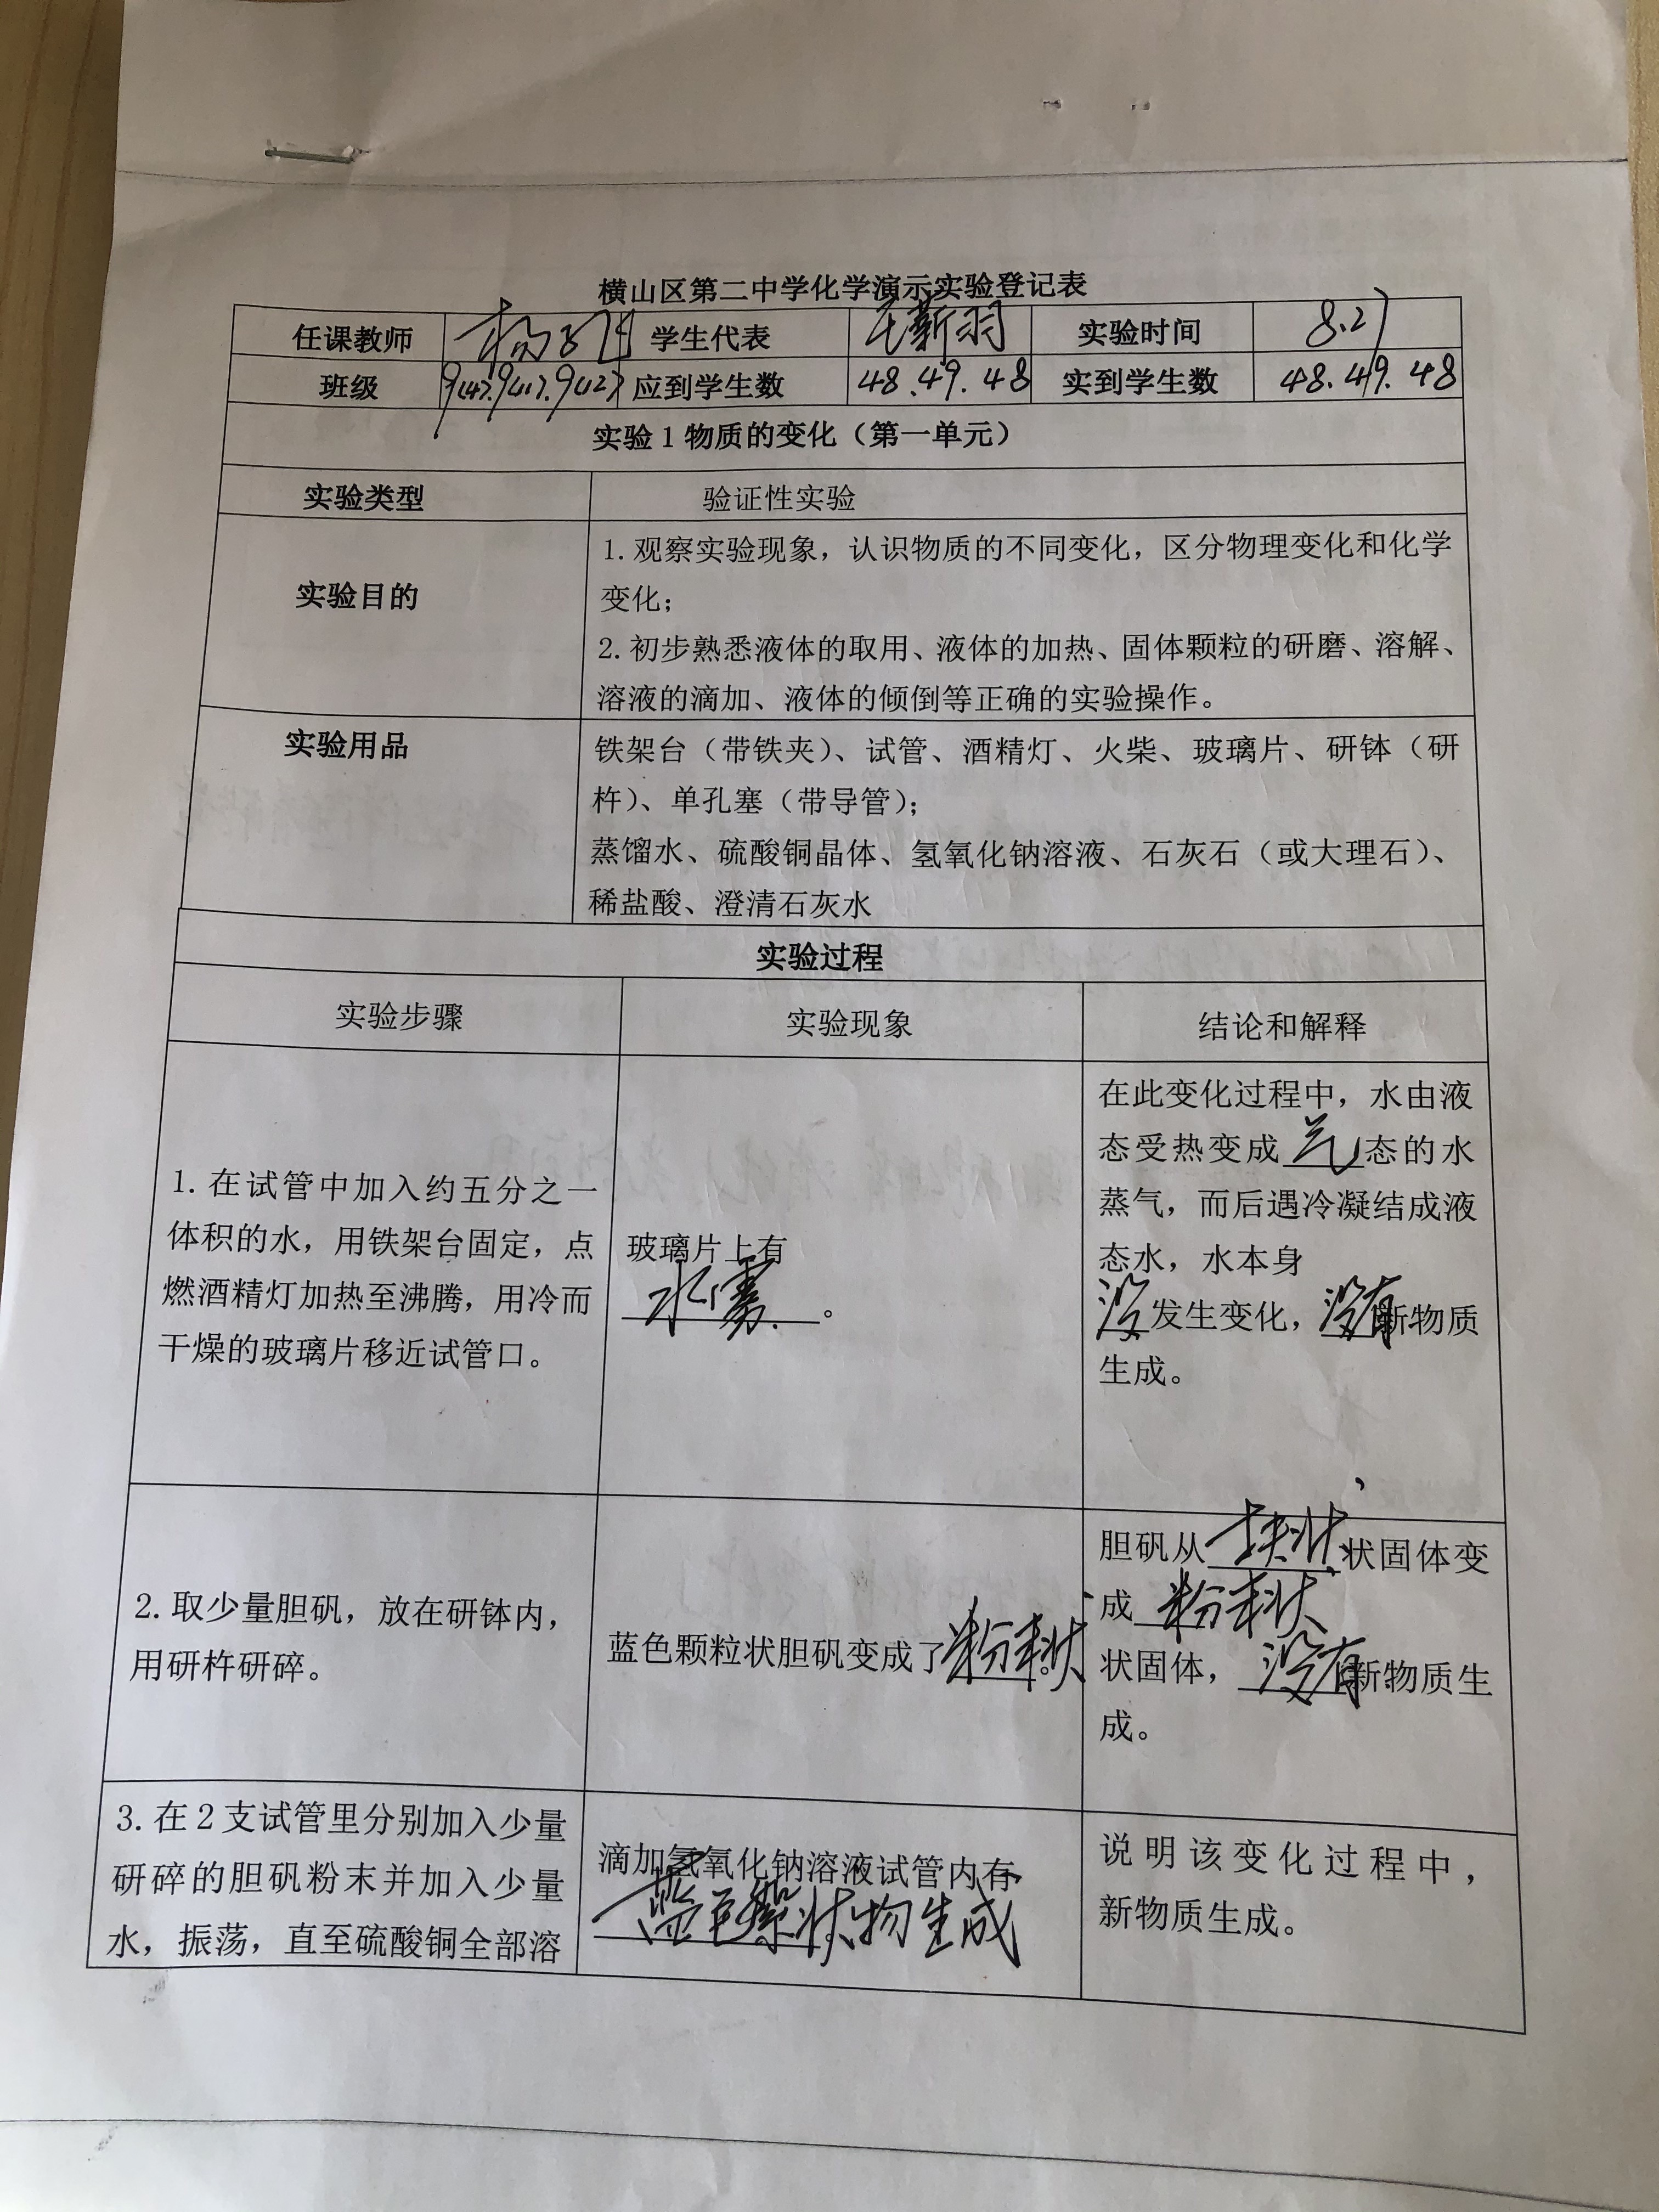 横山区第二中学化学演示实验登记表
任课教师 学生代表 实验时间 8.27
班级 应到学生数 48.49.48 实到学生数 48.49.48
实验1物质的变化（第一单元）
实验类型 验证性实验
实验目的
1.观察实验现象，认识物质的不同变化，区分物理变化和化学
变化；
2.初步熟悉液体的取用、液体的加热、固体颗粒的研磨、溶解、
溶液的滴加、液体的倾倒等正确的实验操作。
实验用品
铁架台（带铁夹）、试管、酒精灯、火柴、玻璃片、研钵（研
杵）、单孔塞（带导管）；
蒸馏水、硫酸铜晶体、氢氧化钠溶液、石灰石（或大理石）、
稀盐酸、澄清石灰水
实验过程
实验步骤 实验现象 结论和解释
1.在试管中加入约五分之一
体积的水，用铁架台固定，点
燃酒精灯加热至沸腾，用冷而
干燥的玻璃片移近试管口。
玻璃片上有
水雾。
在此变化过程中，水由液
态受热变成气态的水
蒸气，而后遇冷凝结成液
态水，水本身
没发生变化，没有新物质
生成。
2.取少量胆矾，放在研钵内，
用研杵研碎。
蓝色颗粒状胆矾变成了粉末状。
胆矾从块状状固体变
成粉末状
状固体，没有新物质生
成。
3.在2支试管里分别加入少量
研碎的胆矾粉末并加入少量
水，振荡，直至硫酸铜全部溶
滴加氢氧化钠溶液试管内有
蓝色絮状物生成
说明该变化过程中，
新物质生成。